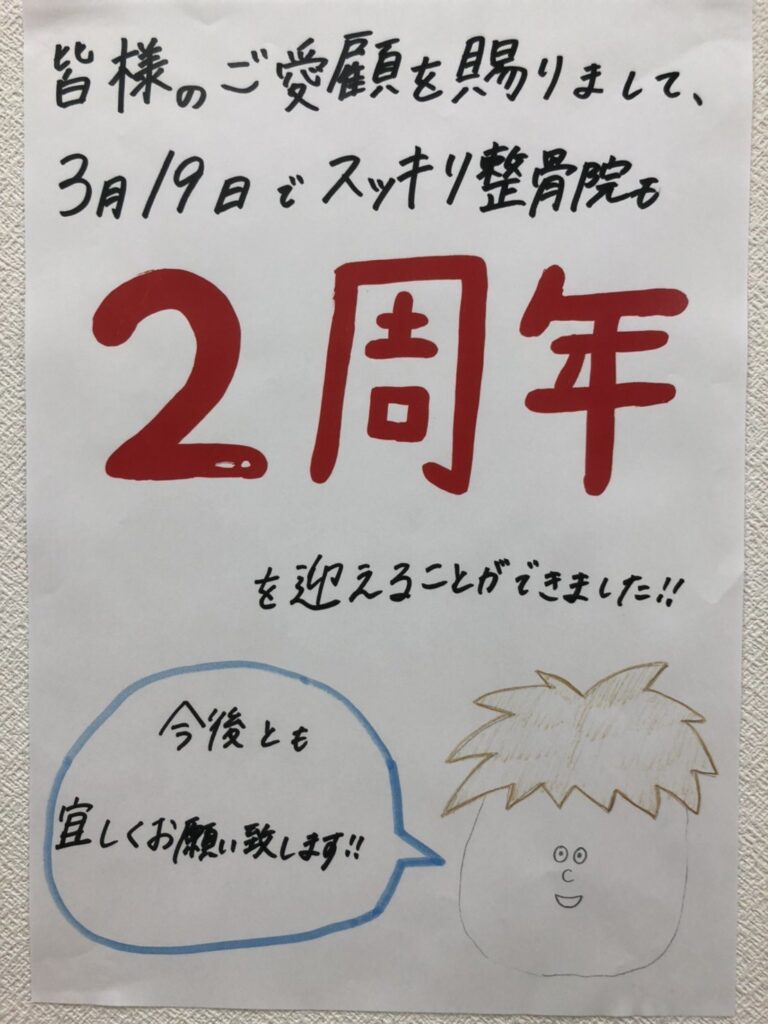 皆様のご愛顧を賜りまして、
3月19日でスッキリ整骨院も
2周年
を迎えることができました!!
今後とも
宜しくお願い致します!!